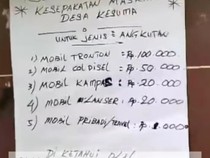 KESEPAKATAN MASYA
DESA KESUMA
UNTUK JENIS ANGKUTAN
1) MOBIL TRONTON = Rp. 100.000
2) MOBIL COLDISEL = Rp. 50.000
3) MOBIL KAMPAS = Rp. 20.000
4) MOBIL = Rp. 20.000
5) MOBIL PRIBADI/TRAVEL = Rp. .000
DI KETAHUI OLEH